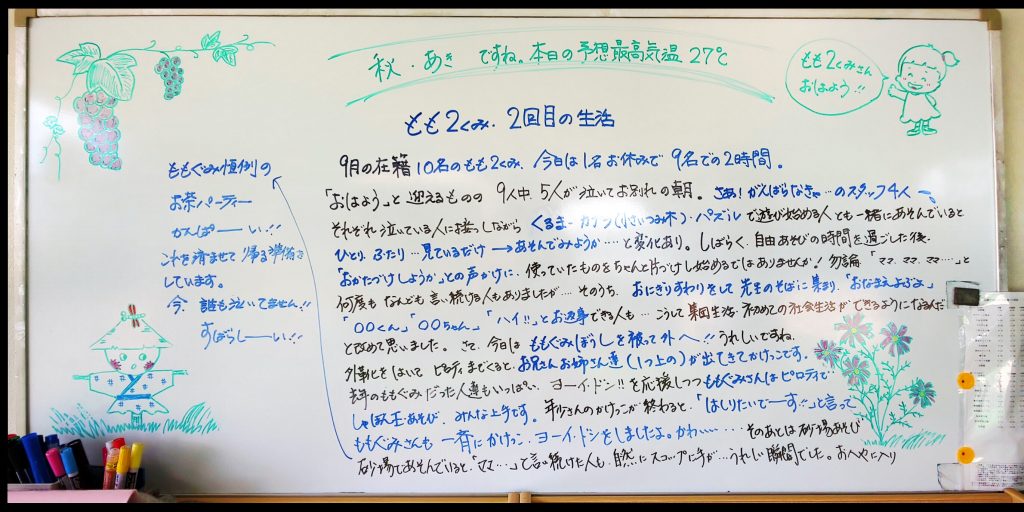 秋・あき ですね。本日の予想最高気温 27℃
もも2くみさん
おはよう!!
もも2くみ. 2回目の生活
9月の在籍 10名のもも2くみ. 今日は1名お休みで 9名での2時間。
「おはよう」と 迎えるものの 9人中. 5人が泣いてお別れの朝。さあ!がんばらなきゃ…のスタッフ4人
それぞれ泣いている人に接しながら くるま・カプラ(小さいつみ木)・パズルで遊び始める人とも一緒にあそんでいると
ひとり ふたり… 見ているだけ → あそんでみようか….と変化あり。しばらく.自由あそびの時間を過ごした後.
「おかたづけしようか」との声がけに. 使っていたものをちゃんと片づけし始めるではありませんか! 勿論「ママ.ママ.ママ…」と
何度も なんども 言い続ける人もありましたが…. そのうち. おにぎりすわりをして 先生のそばに集まり.「おなまえよぶよ」
「〇〇くん」「〇〇ちゃん」 「ハイ!!」とお返事できる人も… こうして 集団生活・初めての社会生活が できるようになるんだ
と改めて思いました。さて. 今日は ももぐみぼうしを被って 外へ!! うれしいですね.
外靴をはいて ピロティまでくると. お兄さんお姉さん達(1つ上の)が出てきてかけっこです。
去年のももぐみだった人達もいっぱい. ヨーイ・ドン!! を応援しつつ ももぐみさんはピロティで
しゃぼん玉あそび. みんな上手です。年少さんのかけっこが終わると.「はしりたいでーす!!」と言って
ももぐみさんも 一斉にかけっこ. ヨーイ・ドンをしましたよ。かわい…… そのあとは 砂場あそび
砂場であそんでいると.「ママ…」と言い続けた人も. 自然に スコップに手が…うれしい瞬間でした。おへやに入り
ももぐみ恒例の
お茶パーティー
かんぱーーい!!
これを済ませて 帰る準備を
しています。
今. 誰も泣いてません!!
すばらしーーい!!